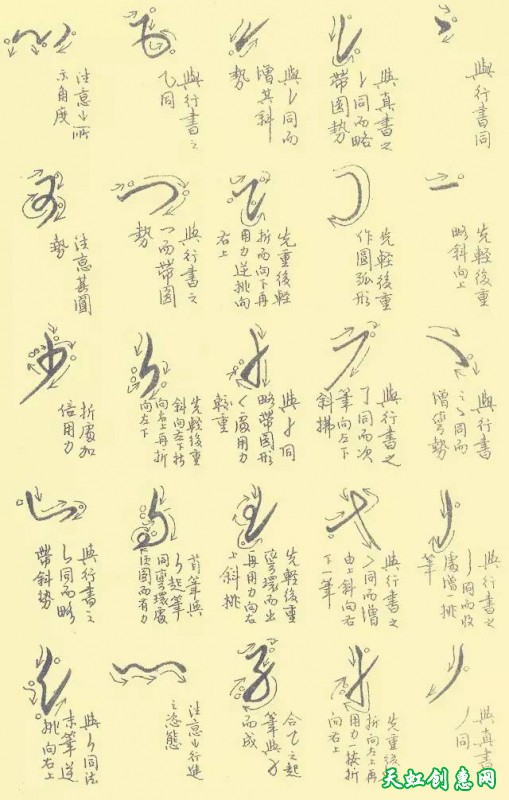 與行書同
與真書之
㇄同而略
帶圓勢
與㇄同而
增其斜
勢
與行書之
乙同
注意其所
示角度
先輕後重
略斜向上
先輕後重
作圓弧形
先重後輕
折而向下再
用力逆挑向
右上
與行書之
乛而帶圓
勢
注意其圓
勢
與行書
之㇏同而
增彎勢
與行書之
了同而次
筆向左下
斜拂
與才同
略帶圓形
く處用力
較重
先輕後重
斜向左下折
向右上再折
向左下
折處加
倍用力
與行書之
亅同而收
處增一挑
筆
與行書之
㇇同而增
由上斜向右
下一筆
先輕後重
彎環而出
再用力向右
上斜挑
首筆與
㇉起筆
同彎環處
須圓而有力
與行書之
㇄同而略
帶斜勢
與真書
丿同
先重後
折向左上再
用力一按折
向右上
合乙之起
筆與了
而成
注意其行進
之恣態
與㇉同法
末筆逆
挑向右上
天虹创惠网